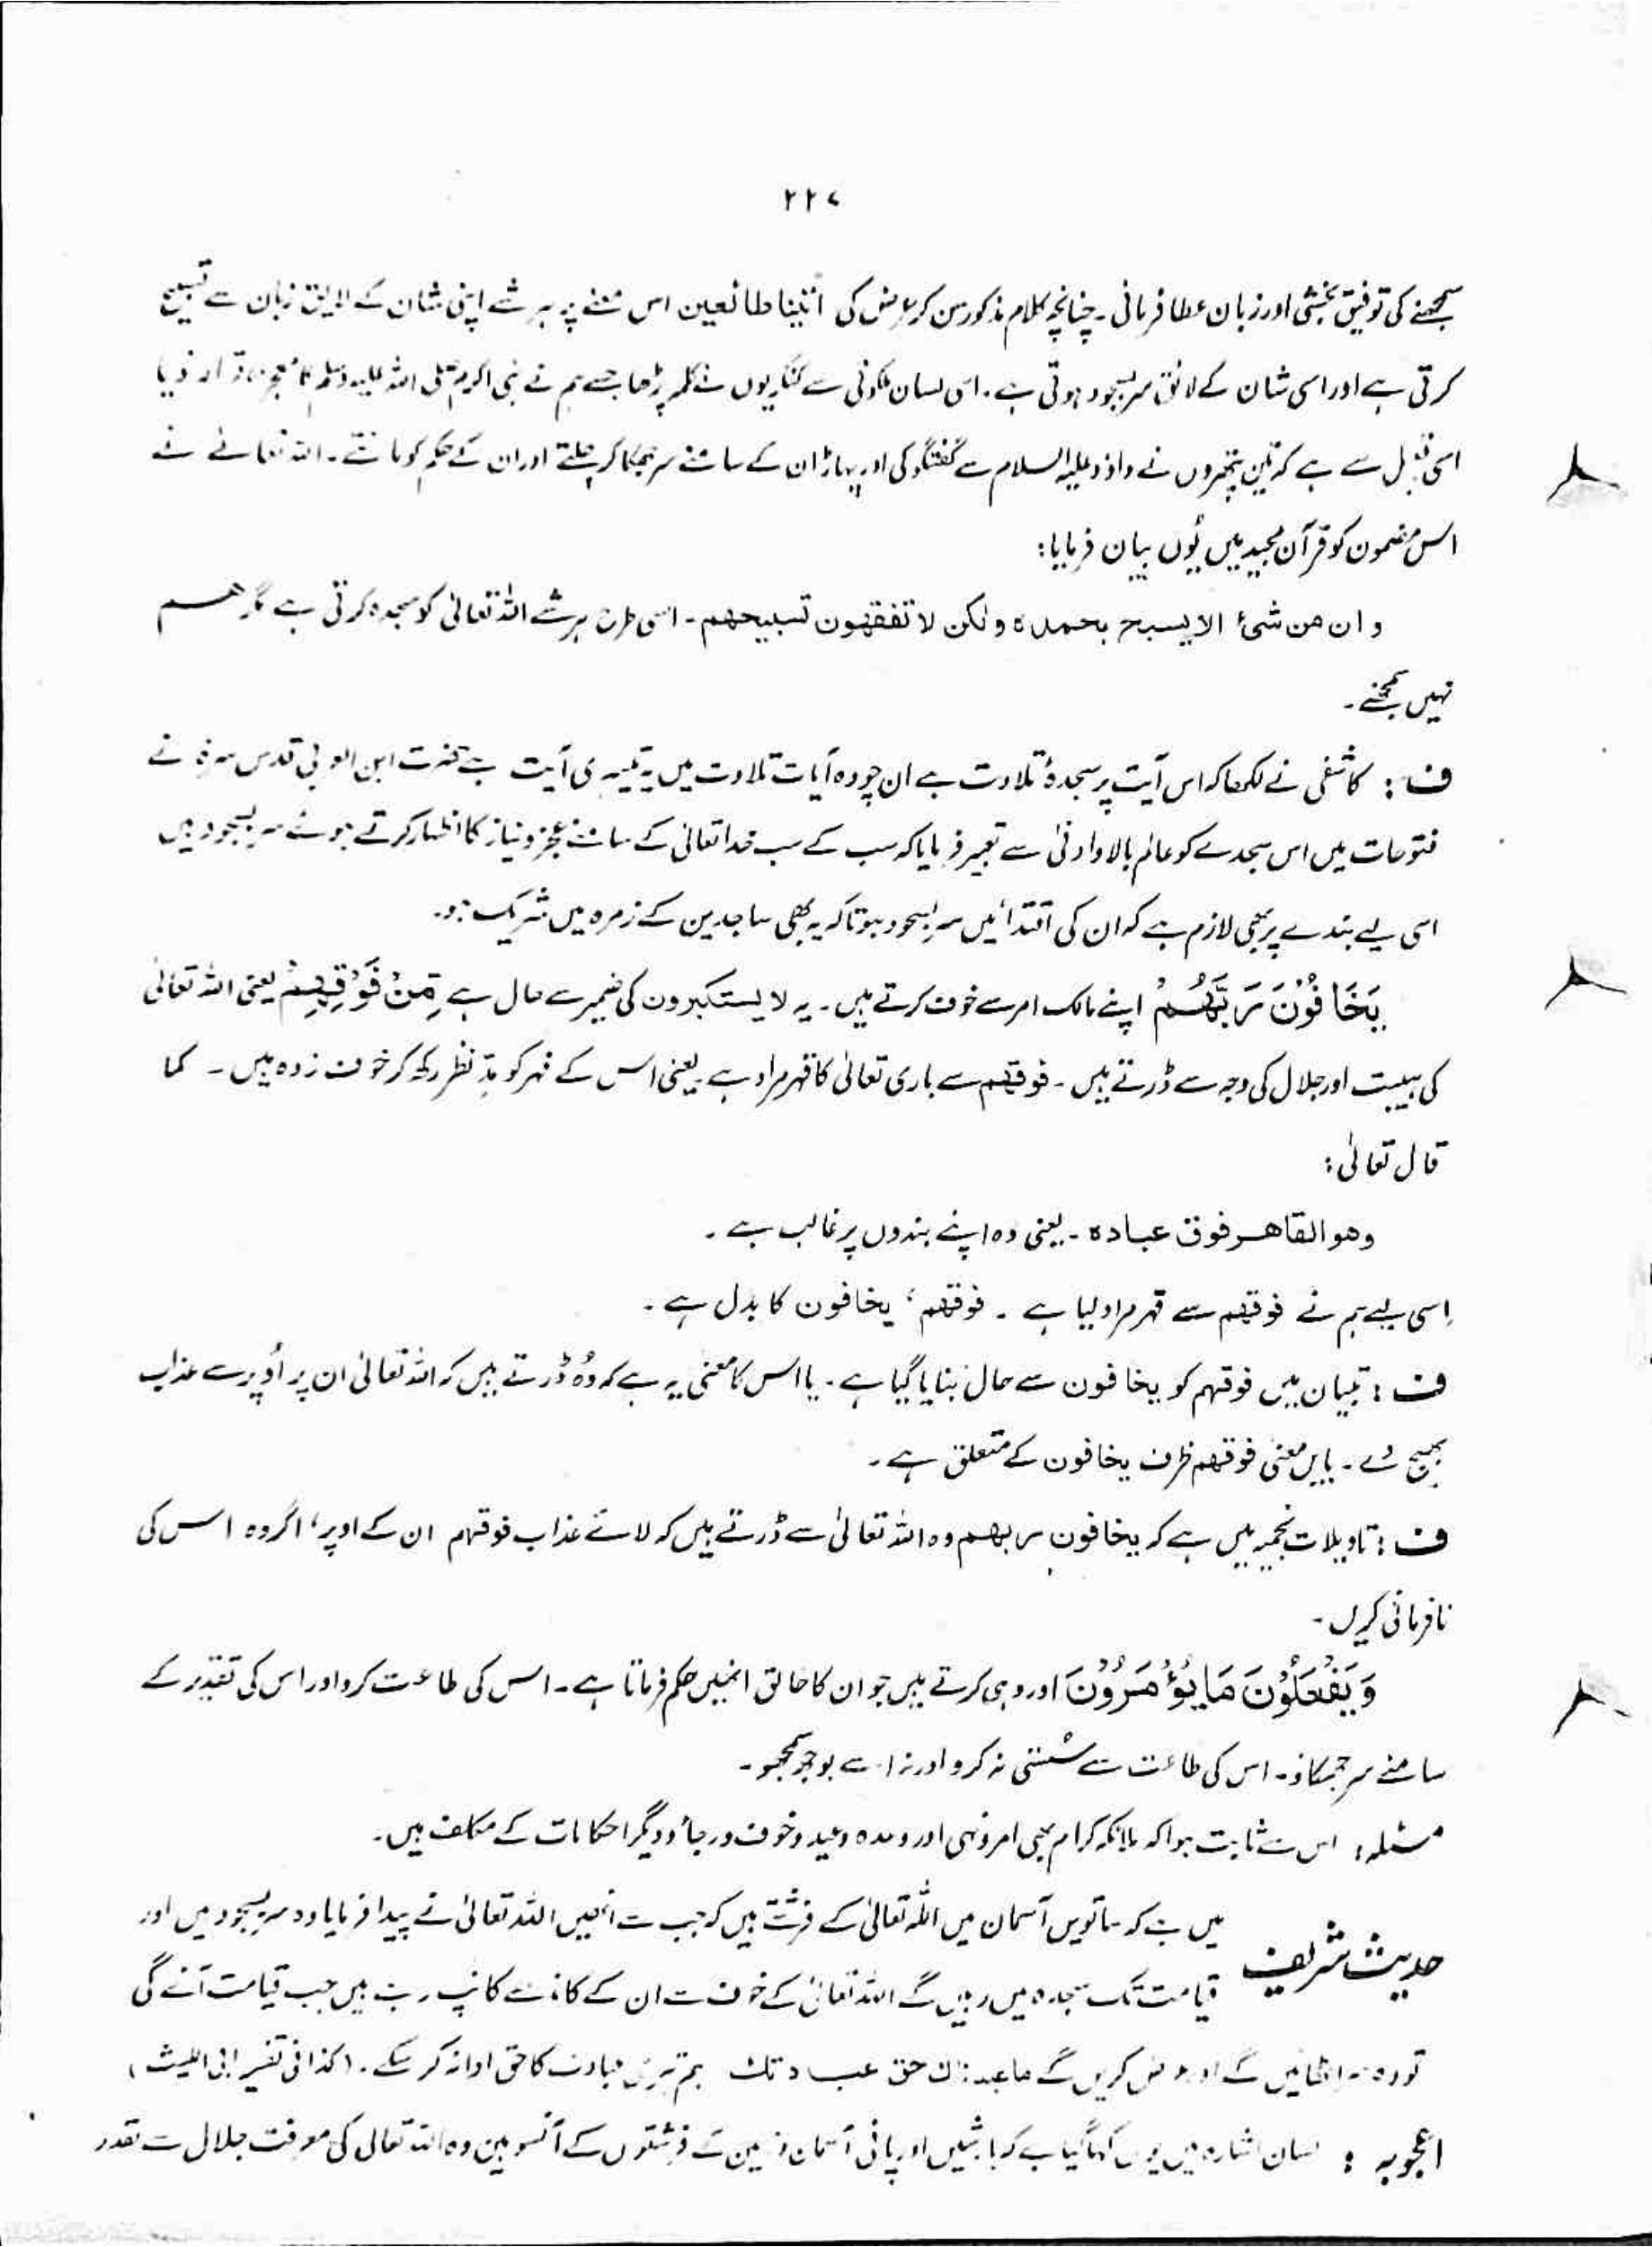 ۲۲۷
سمجھنے کی توفیق بخشی اور زبان عطا فرمائی۔ چنانچہ کلام مذکور سن کر عرض کی اتینا طائعین اس معنے پر ہر شے اپنی شان کے لایق زبان سے تسبیح
کرتی ہے اور اسی شان کے لائق سربسجود ہوتی ہے۔ اسی لسان ملکوتی سے کنکریوں نے کلمہ پڑھا جسے ہم نے نبی اکرم صلی اللہ علیہ وسلم کا معجزہ قرار دیا
اسی قبیل سے ہے کہ تین پتھروں نے داؤد علیہ السلام سے گفتگو کی اور پہاڑ ان کے سامنے سر جھکا کر چلتے اور ان کے حکم کو مانتے۔ اللہ تعالےٰ نے
اس مضمون کو قرآن مجید میں یُوں بیان فرمایا:
و ان من شیٔ الا یسبح بحمدہ ولکن لا تفقھون تسبیحھم۔ اسی طرح ہر شے اللہ تعالیٰ کو سجدہ کرتی ہے مگر ھم
نہیں سمجھتے۔
ف : کاشفی نے لکھا کہ اس آیت پر سجدۂ تلاوت ہے ان چودہ آیات تلاوت میں یہ تیسری آیت ہے حضرت ابن العربی قدس سرہٗ نے
فتوحات میں اس سجدے کو عالم بالا و ادنیٰ سے تعبیر فرمایا کہ سب کے سب خدا تعالیٰ کے سامنے عجز و نیاز کا اظہار کرتے ہوئے سر بسجود ہیں
اسی لیے بندے پر بھی لازم ہے کہ ان کی اقتدا میں سربسجود ہو تاکہ یہ بھی ساجدین کے زمرہ میں شریک ہو۔
یَخَافُوْنَ رَبَّھُمْ اپنے مالک امر سے خوف کرتے ہیں۔ یہ لا یستکبرون کی ضمیر سے حال ہے مِّنْ فَوْقِھِمْ یعنی اللہ تعالیٰ
کی ہیبت اور جلال کی وجہ سے ڈرتے ہیں۔ فوقھم سے باری تعالیٰ کا قہر مراد ہے یعنی اس کے قہر کو مدِّ نظر رکھ کر خوف زدہ ہیں۔ کما
قال تعالٰی:
وھو القاھر فوق عبادہ۔ یعنی وہ اپنے بندوں پر غالب ہے۔
اِسی لیے ہم نے فوقھم سے قہر مراد لیا ہے۔ فوقھم، یخافون کا بدل ہے۔
ف : تبیان میں فوقہم کو یخافون سے حال بنایا گیا ہے۔ یا اس کا معنیٰ یہ ہے کہ وُہ ڈرتے ہیں کہ اللہ تعالیٰ ان پر اُوپر سے عذاب
بھیج دے۔ بایں معنی فوقھم ظرف یخافون کے متعلق ہے۔
ف : تاویلات نجمیہ میں ہے کہ یخافون ربھم وہ اللہ تعالیٰ سے ڈرتے ہیں کہ لائے عذاب فوقھم ان کے اوپر، اگر وہ اس کی
نافرمانی کریں۔
وَیَفْعَلُوْنَ مَا یُؤْمَرُوْنَ اور وہی کرتے ہیں جو ان کا خالق انھیں حکم فرماتا ہے۔ اس کی طاعت کرو اور اس کی تقدیر کے
سامنے سر جھکاؤ۔ اس کی طاعت سے سُستی نہ کرو اور نہ اسے بوجھ سمجھو۔
مسئلہ : اس سے ثابت ہوا کہ ملائکہ کرام بھی امر و نہی اور وعدہ و عید و خوف و رجأ و دیگر احکامات کے مکلف ہیں۔
حدیث شریف میں ہے کہ ساتویں آسمان میں اللہ تعالیٰ کے فرشتے ہیں کہ جب سے انھیں اللہ تعالیٰ نے پیدا فرمایا وہ سربسجود ہیں اور
قیامت تک سجدہ میں رہیں گے اللہ تعالیٰ کے خوف سے ان کے کاندھے کانپ رہے ہیں جب قیامت آئے گی
تو وہ سر اٹھائیں گے اور عرض کریں گے ما عبدناک حق عبادتک ہم تیری عبادت کا حق ادا نہ کر سکے۔ (کذا فی تفسیر ابی اللیث)
اعجوبہ : لسان اشارہ میں یوں کہا گیا ہے کہ بارشیں اور پانی آسمان زمین کے فرشتوں کے آنسو ہیں وہ اللہ تعالیٰ کی معرفت جلال سے بقدر